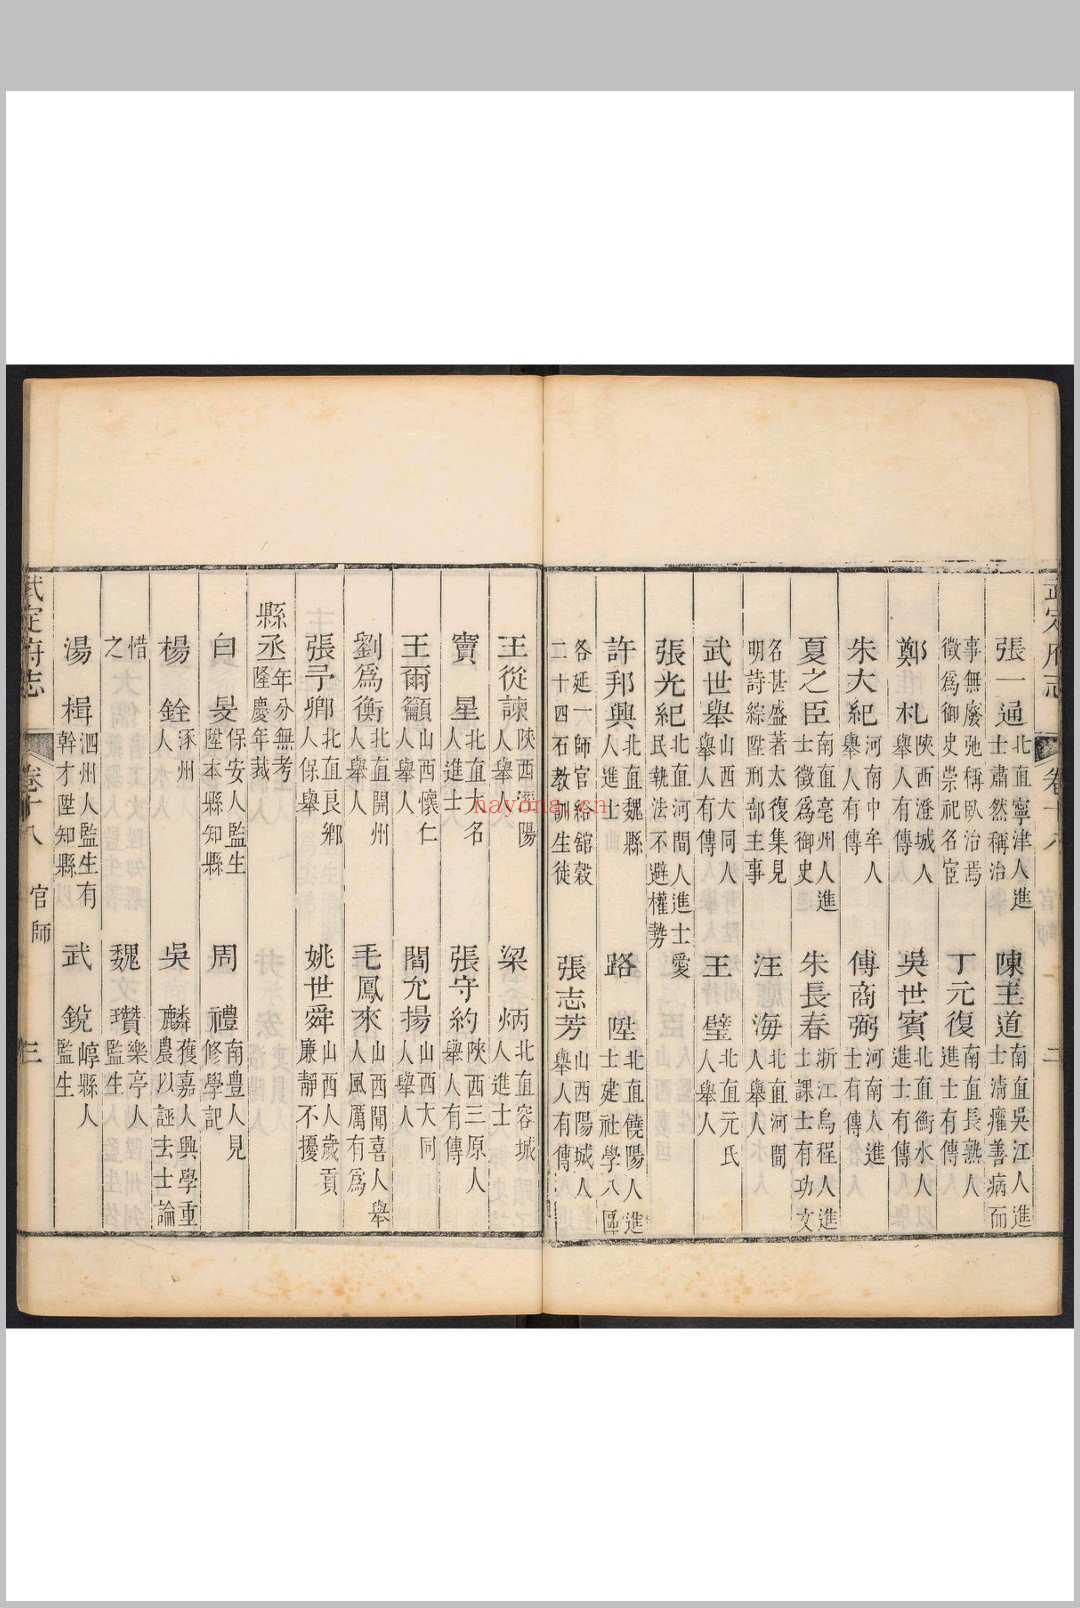 武定府志 卷十八 官師 二
張一通 北直寧津人進士肅然稱治 陳王道 南直吳江人進士清癯善病而
事無廢弛稱臥治焉徵爲御史崇祀名宦 丁元復 南直長熟人進士有傳
鄭札 陝西澄城人舉人有傳 吳世賓 北直衡水人進士有傳
朱大紀 河南中牟人舉人有傳 傅商弼 河南人進士有傳
夏之臣 南直亳州人進士徵爲御史 朱長春 浙江烏程人進士課士有功文
名甚盛著太復集見明詩綜陞刑部主事 汪海 北直河間人舉人
武世舉 山西大同人舉人有傳 王璧 北直元氏人舉人
張光紀 北直河間人進士愛民執法不避權勢
許邦興 北直魏縣人進士 路陞 北直饒陽人進士建社學八區
各延一師官給舘穀二十四石教訓生徒 張志芳 山西陽城人舉人有傳
王從諫 陝西涇陽人舉人 梁炳 北直容城人進士
竇星 北直大名人進士 張守約 陝西三原人舉人有傳
王爾籲 山西懷仁人舉人 閻允揚 山西大同人舉人
劉爲衡 北直開州人舉人 毛鳳來 山西聞喜人舉人風厲有爲
張予卿 北直良鄉人保舉 姚世舜 山西人歲貢廉靜不擾
縣丞 年分無考隆慶年裁
白旻 保安人監生陞本縣知縣 周禮 南豊人見修學記
楊銓 涿州人 吳麟 獲嘉人興學重農以誣去士論
惜之 魏瓚 樂亭人監生
湯楫 泗州人監生有幹才陞知縣 武銳 崞縣人監生
武定府志 卷十八 官師 三
nayona.cn